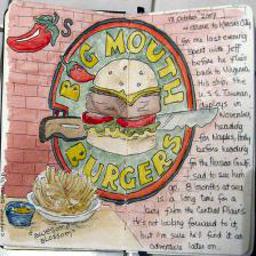 's
BIG MOUTH
BURGERS
"AWESOME
BLOSSOM"
18 October 2007
for one last evening
spent with Jeff
before he flies
back to Virginia.
His ship, the
U.S.S. Truman,
deploys in
November,
heading
for Naples, Italy
before heading
for the Persian Gulf.
I was sad to see him
go. 8 months at sea
is a long time for a
boy from the Central Plains.
He's not looking forward to it
but I'm sure he'll find it an
adventure later on...